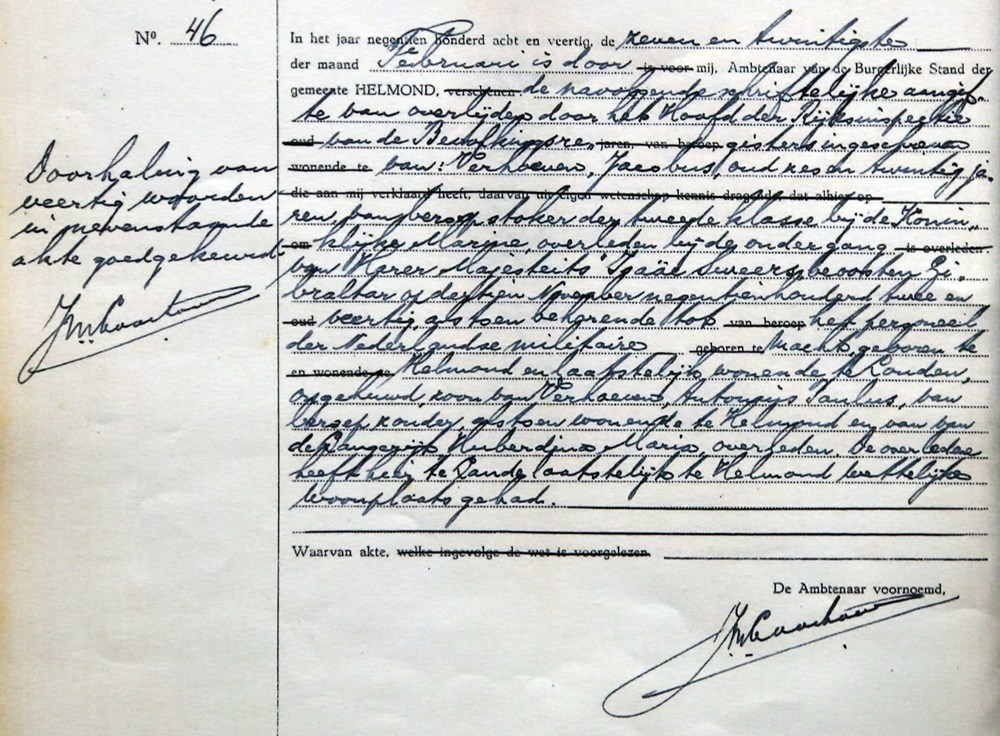 No. 46
In het jaar negentien honderd acht en veertig, de zeven en twintigste
der maand Februari is door is voor mij, Ambtenaar van de Burgerlijke Stand der
gemeente HELMOND, verschenen de navolgende schriftelijke aangif-
te van overlijden door het Hoofd der Rijksinspectie
oud van de Bevolkingsreg jaren, van beroep gisters ingeschreven
wonende te van: Verhoeven, Jacobus, oud zes en twintig ja-
die aan mij verklaard heeft, daarvan uit eigen wetenschap kennis dragende, dat alhier op
ren, van beroep stoker der tweede klasse bij de Konin-
om klijke Marine, overleden bij de ondergang is overleden
van Harer Majesteits Isaäc Sweers, beoosten Gi-
braltar op dertien November negentienhonderd twee en
oud veertig, als toen behorende tot van beroep het personeel
der Nederlandse militaire geboren te macht, geboren te
en wonende te Helmond en laatstelijk wonende te Londen,
ongehuwd, zoon van Verhoeven, Antonius Paulus, van
beroep zonder, als toen wonende te Helmond en van van
de Hubardina Maria, overleden. De overledene
heeft hier te lande laatstelijk te Helmond wettelijke
woonplaats gehad.
Waarvan akte, welke ingevolge de wet is voorgelezen.
De Ambtenaar voornoemd,
Doorhaling van
veertig woorden
in nevenstaande
akte goedgekeurd.